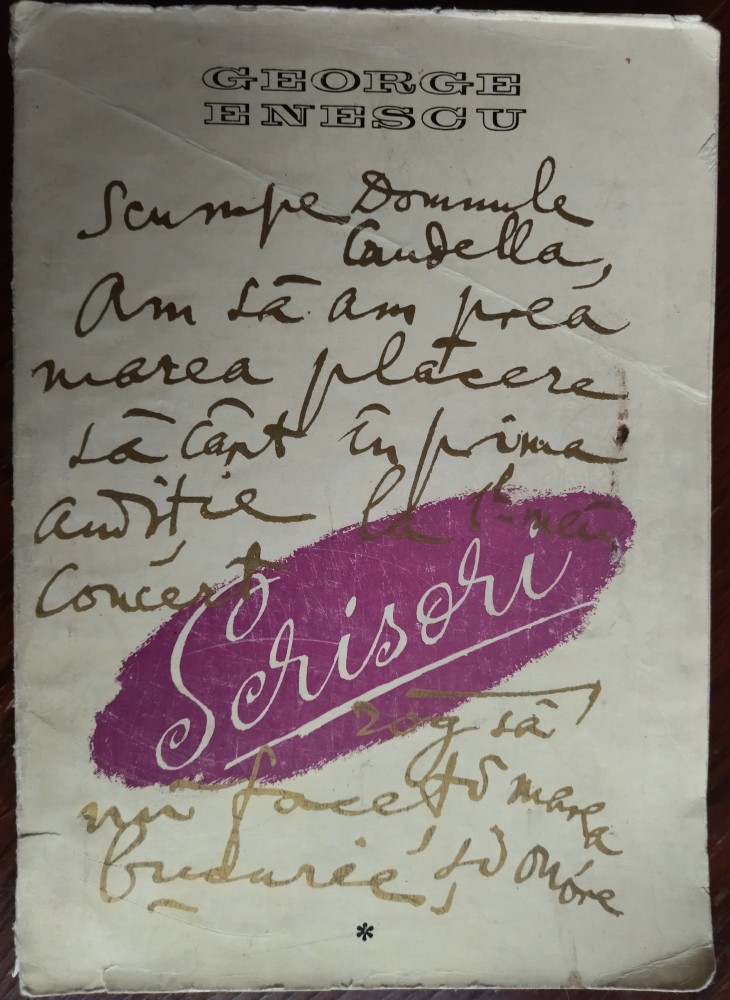 GEORGE
ENESCU
Scumpe Domnule
Caudella,
Am să am prea
marea plăcere
să cânt în prima
audiție la 1-
Concert
Scrisori
rog să
mĭ faceți marea
bucurie, și onóre
*